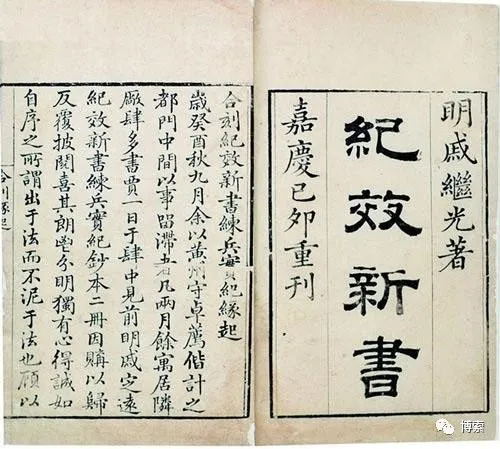 明戚繼光著
紀效新書
嘉慶己夘重刊
合刻紀效新書練兵實紀緣起
歲癸酉秋九月余以黃州守卓薦偕計之
都門中間以事畱滯者凡兩月餘寓居隣
廠肆多書賈一日于肆中見前明戚定遠
紀效新書練兵實紀鈔本二冊因購以歸
反覆披閱喜其朗鬯分明獨有心得誠如
自序之所謂出于法而不泥于法也顧以
合刻緣起
博索